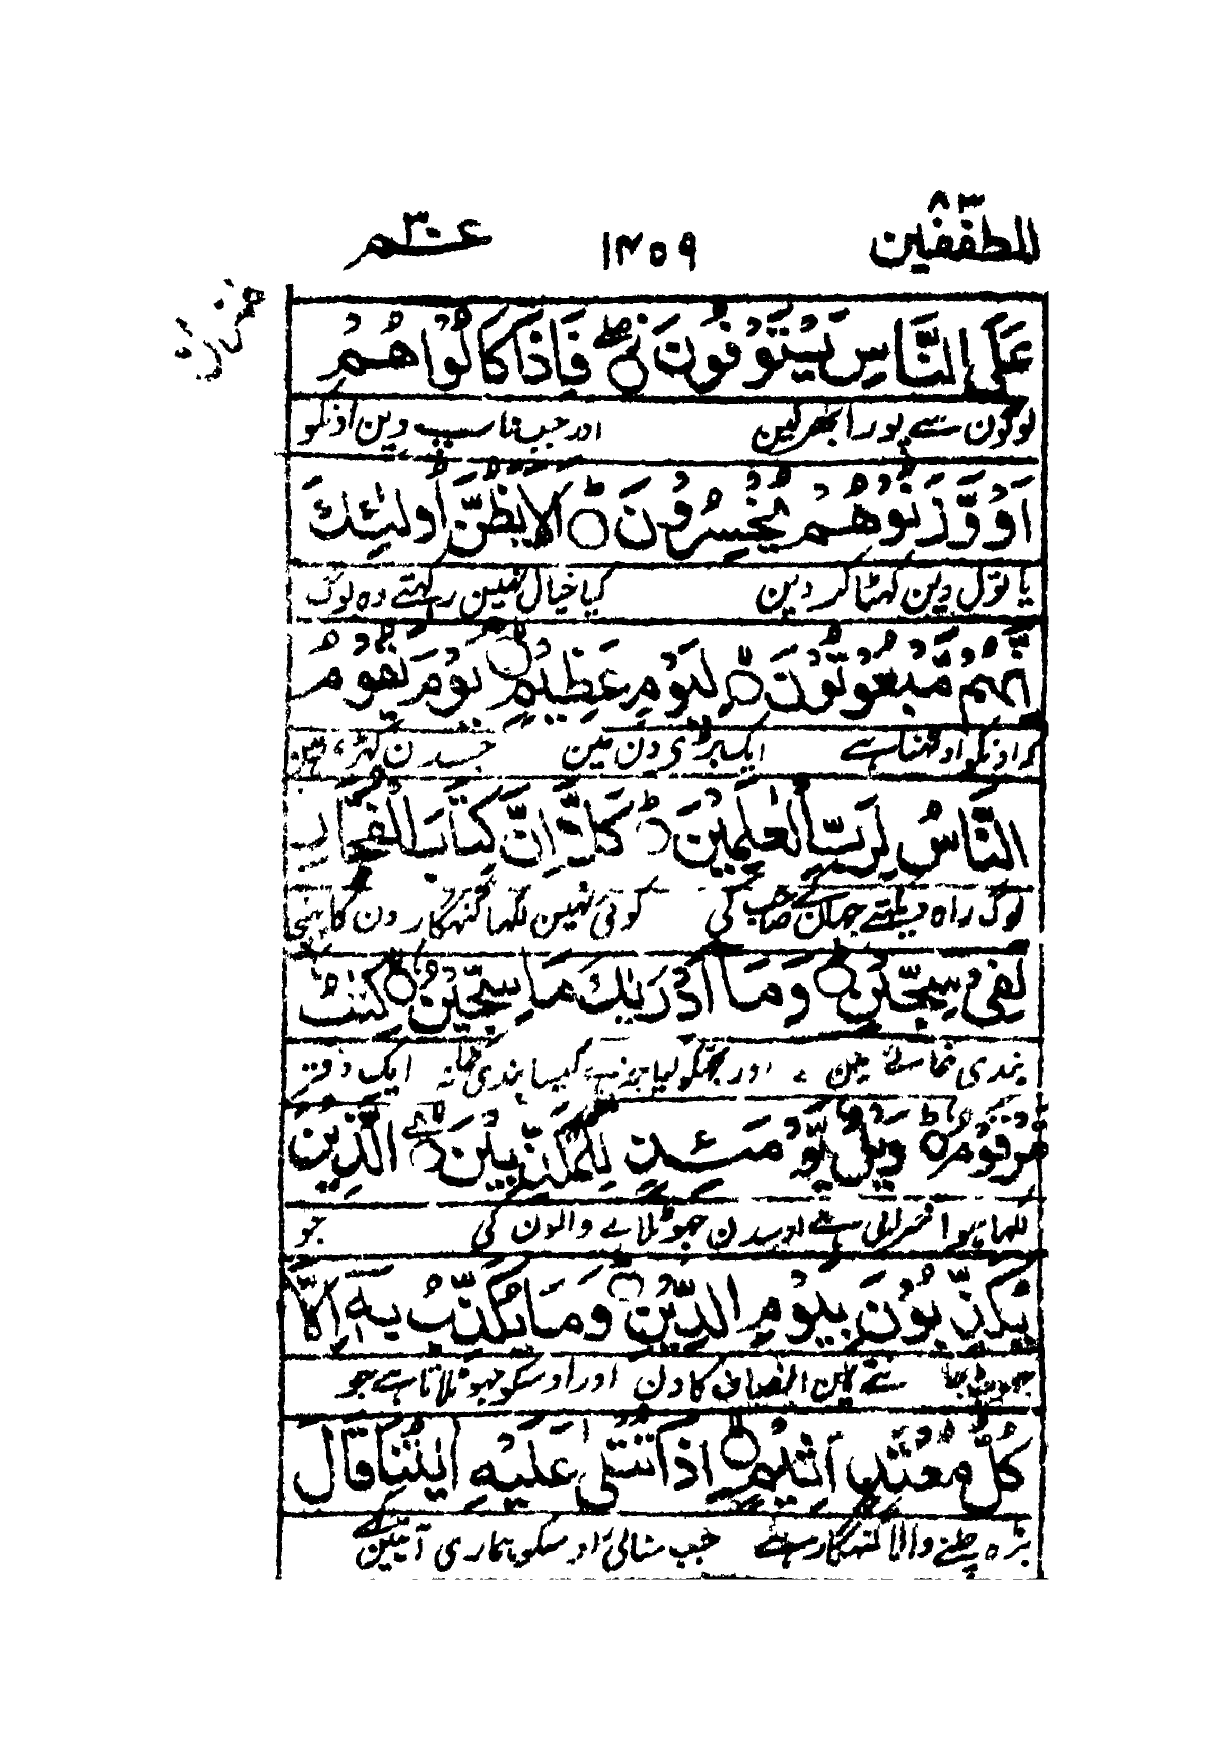 المطففین ٨٣ ١٤٥٩ عم ٣٠
عَلَى النَّاسِ يَسْتَوْفُونَ ۝ وَإِذَا كَالُوهُمْ
لوگون سے پورا بھر لین اور جب ناپ دین اونکو
أَوْ وَّزَنُوهُمْ يُخْسِرُونَ ۝ أَلَا يَظُنُّ أُولَٰئِكَ
یا تول دین گھٹا کر دین کیا خیال نہین رکھتے وہ لوگ
أَنَّهُم مَّبْعُوثُونَ ۝ لِيَوْمٍ عَظِيمٍ ۝ يَوْمَ يَقُومُ
کہ اونکو اوٹھنا ہے ایک بڑے دن مین جسدن کھڑے ہین
النَّاسُ لِرَبِّ الْعٰلَمِيْنَ ۝ كَلَّا إِنَّ كِتَابَ الْفُجَّارِ
لوگ راہ دیکھتے جہان کے صاحب کی کوئی نہین لکھا گنہگارون کا پہنچا
لَفِي سِجِّينٍ ۝ وَمَا أَدْرٰىكَ مَا سِجِّينٌ ۝ كِتٰبٌ
بندی خانے مین اور تجھکو کیا خبر ہے کیسا بندی خانہ ایک دفتر
مَّرْقُومٌ ۝ وَيْلٌ يَّوْمَئِذٍ لِّلْمُكَذِّبِينَ ۝ الَّذِينَ
لکھا ہوا خرابی ہے اوسدن جھوٹلانے والون کی جو
يُكَذِّبُونَ بِيَوْمِ الدِّينِ ۝ وَمَا يُكَذِّبُ بِهٖ إِلَّا
جھوٹ جانتے ہین انصاف کا دن اور اوسکو جھوٹلاتا ہے جو
كُلُّ مُعْتَدٍ أَثِيمٍ ۝ إِذَا تُتْلٰى عَلَيْهِ اٰيٰتُنَا قَالَ
بڑہ چلنے والا گنہگار ہے جب سنائی اوسکو ہماری آیتین کہے